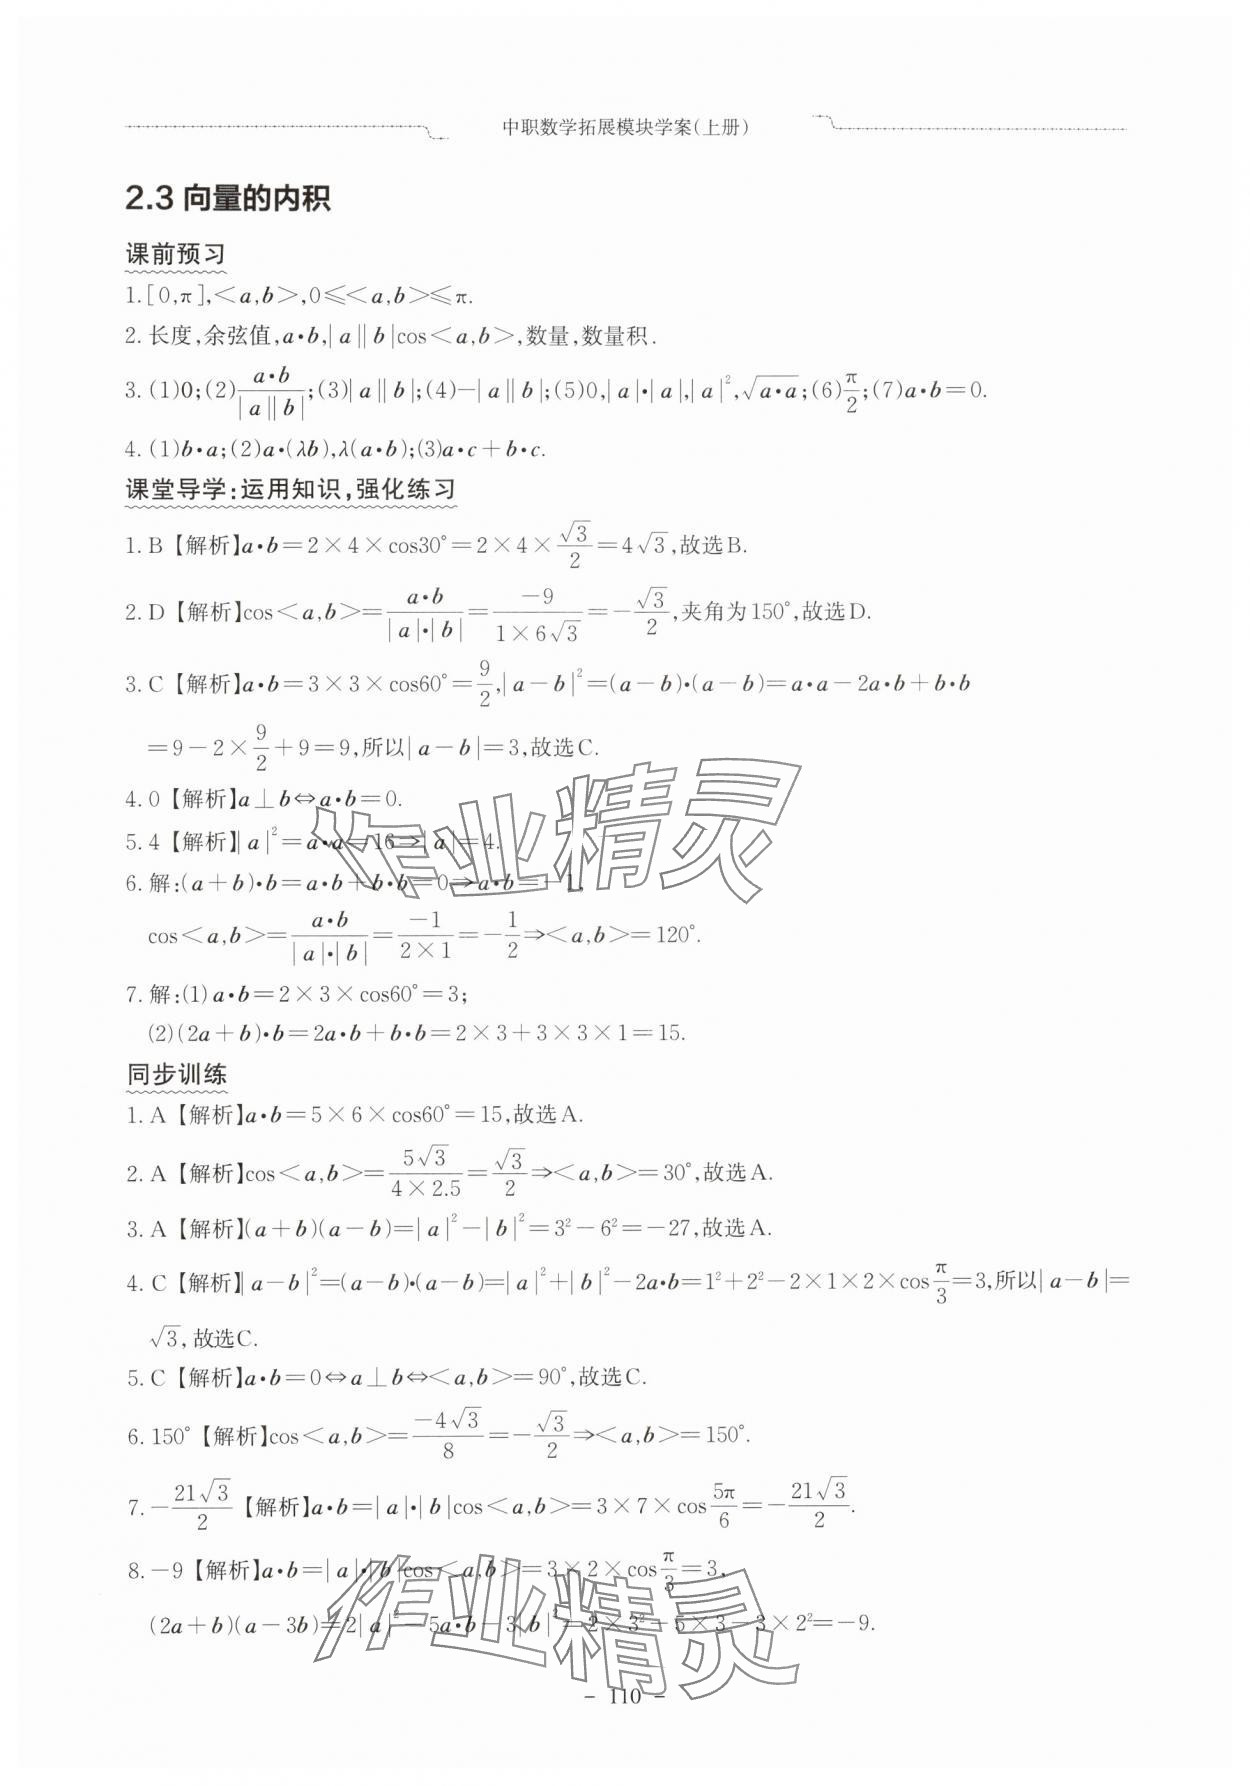 中职数学拓展模块学案(上册)
2.3 向量的内积
课前预习
1.[0,π],<a,b>,0≤<a,b>≤π.
2.长度,余弦值,a·b,|a||b|cos<a,b>,数量,数量积.
3.(1)0;(2)a·b/|a||b|;(3)|a||b|;(4)-|a||b|;(5)0,|a|·|a|,|a|²,√(a·a);(6)π/2;(7)a·b=0.
4.(1)b·a;(2)a·(λb),λ(a·b);(3)a·c+b·c.
课堂导学:运用知识,强化练习
1.B【解析】a·b=2×4×cos30°=2×4×√3/2=4√3,故选B.
2.D【解析】cos<a,b>=a·b/(|a|·|b|)=-9/(1×6√3)=-√3/2,夹角为150°,故选D.
3.C【解析】a·b=3×3×cos60°=9/2,|a-b|²=(a-b)·(a-b)=a·a-2a·b+b·b
=9-2×9/2+9=9,所以|a-b|=3,故选C.
4.0【解析】a⊥b⇔a·b=0.
5.4【解析】|a|²=a·a=16⇒|a|=4.
6.解:(a+b)·b=a·b+b·b=0⇒a·b=-1,
cos<a,b>=a·b/(|a|·|b|)=-1/(2×1)=-1/2⇒<a,b>=120°.
7.解:(1)a·b=2×3×cos60°=3;
(2)(2a+b)·b=2a·b+b·b=2×3+3×3×1=15.
同步训练
1.A【解析】a·b=5×6×cos60°=15,故选A.
2.A【解析】cos<a,b>=5√3/(4×2.5)=√3/2⇒<a,b>=30°,故选A.
3.A【解析】(a+b)(a-b)=|a|²-|b|²=3²-6²=-27,故选A.
4.C【解析】|a-b|²=(a-b)·(a-b)=|a|²+|b|²-2a·b=1²+2²-2×1×2×cosπ/3=3,所以|a-b|=
√3,故选C.
5.C【解析】a·b=0⇔a⊥b⇔<a,b>=90°,故选C.
6.150°【解析】cos<a,b>=-4√3/8=-√3/2⇒<a,b>=150°.
7.-21√3/2【解析】a·b=|a|·|b|cos<a,b>=3×7×cos5π/6=-21√3/2.
8.-9【解析】a·b=|a|·|b|cos<a,b>=3×2×cosπ/3=3,
(2a+b)(a-3b)=2|a|²-5a·b-3|b|²=2×3²-5×3-3×2²=-9.
- 110 -
作业精灵
作业精灵